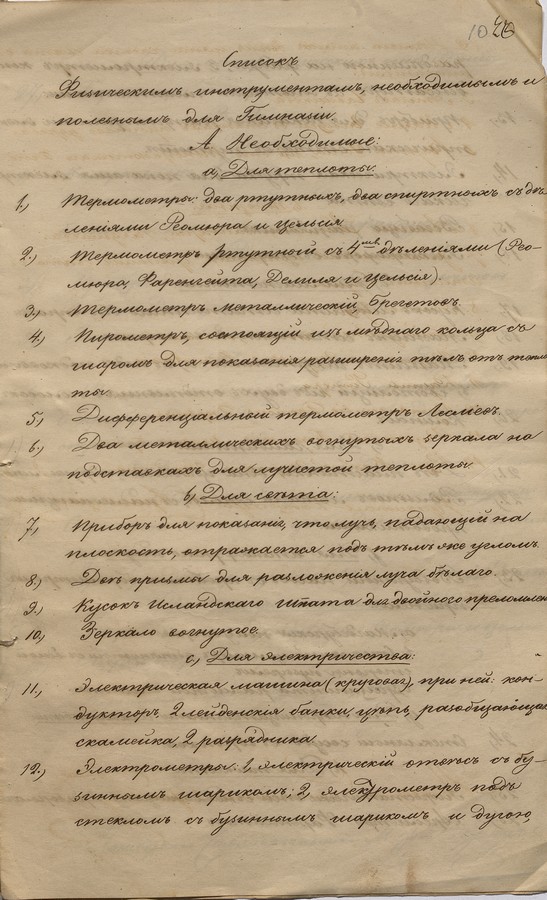 10 26
Списокъ
Физическимъ инструментамъ, необходимымъ и
полезнымъ для Гимназіи.
А. Необходимые:
а, Для теплоты:
1., Термометры: два ртутныхъ, два спиртныхъ съ дѣ-
леніями Реомюра и Цельсія
2., Термометръ ртутный съ 4мя дѣленіями (Рео-
мюра, Фаренгейта, Делиля и Цельсія).
3., Термометръ металлическій, Брегетовъ.
4., Пирометръ, состоящій изъ мѣднаго кольца съ
шаромъ для показанія расширенія тѣлъ отъ тепло-
ты.
5., Дифференціальный термометръ Леслiевъ.
6., Два металлическихъ вогнутыхъ зеркала на
подставкахъ для лучистой теплоты.
b, Для свѣта:
7., Приборъ для показанія, что лучъ, падающій на
плоскость, отражается подъ тѣмъ же угломъ.
8., Двѣ призмы для разложенія луча бѣлаго.
9., Кусокъ Исландскаго шпата для двойного преломлен
10., Зеркало вогнутое.
с, Для электричества:
11., Электрическая машина (круговая), при ней: кон-
дукторъ, 2 лейденскія банки, цѣпь, разобщающая
скамейка, 2 разрядника.
12., Электрометры: 1, электрическій отвѣсъ съ бу-
зиннымъ шарикомъ; 2, электрометръ подъ
стекломъ съ бузиннымъ шарикомъ и дугою,